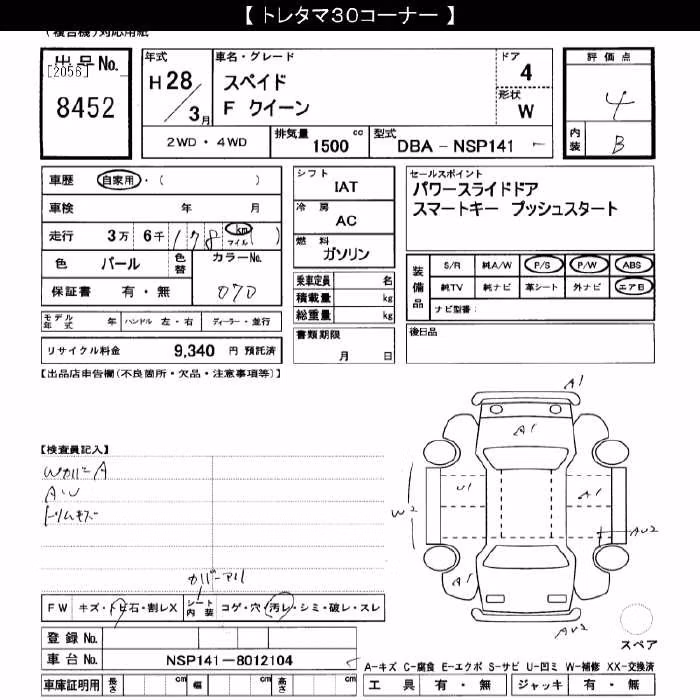 【 トレタマ30コーナー 】
(複合機)対応用紙
出品No.
[2056]
8452
年式
H28/3月
車名・グレード
スペイド
F クイーン
ドア
4
形状
W
評価点
4
内装
B
2WD・4WD
排気量
1500 cc
型式
DBA - NSP141 -
車歴 自家用・( )
車検 年 月
走行 3万 6千 178 km マイル ( )
色 パール
色替
カラーNo.
070
保証書 有・無
モデル年式 年
ハンドル 左・右
ディーラー・並行
リサイクル料金 9,340 円 預託済
シフト
IAT
冷房
AC
燃料
ガソリン
乗車定員 名
積載量 kg
総重量 kg
書類期限
月 日
セールスポイント
パワースライドドア
スマートキー プッシュスタート
装備品
S/R 純A/W P/S P/W ABS
純TV 純ナビ 革シート 外ナビ エアB
ナビ型番:
後日品
【出品店申告欄(不良箇所・欠品・注意事項等)】
【検査員記入】
WカバーA
AU
トリムキズ
カバー・アリ
FW キズ・トビ石・割レX
シート内装 コゲ・穴・汚レ・シミ・破レ・スレ
登録No.
車台No. NSP141-8012104
車庫証明用 長さ cm 幅 cm 高さ cm
A1
A1
U1
A1
W2
AU2
A1
A1
AU2
スペア
A-キズ C-腐食 E-エクボ S-サビ U-凹ミ W-補修 XX-交換済
工具 有・無 ジャッキ 有・無